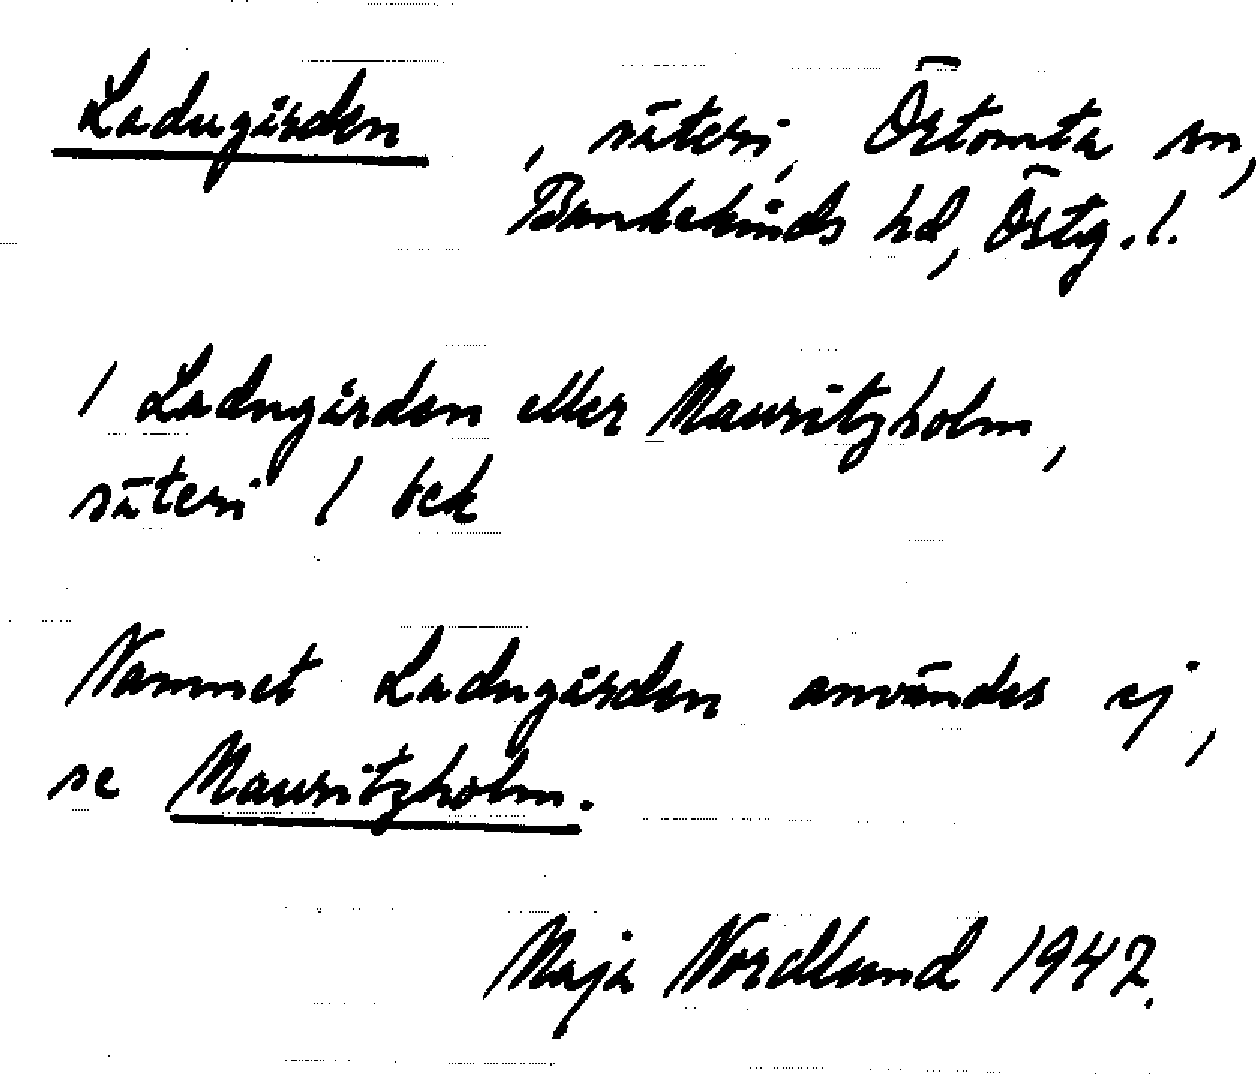 Ladugården , säteri, Östomta sn,
Bankekinds hd, Östg. l.
/ Ladugården eller Mauritzholm,
säteri / bek
Namnet Ladugården användes ej,
se Mauritzholm.
Maja Nordlund 1947.